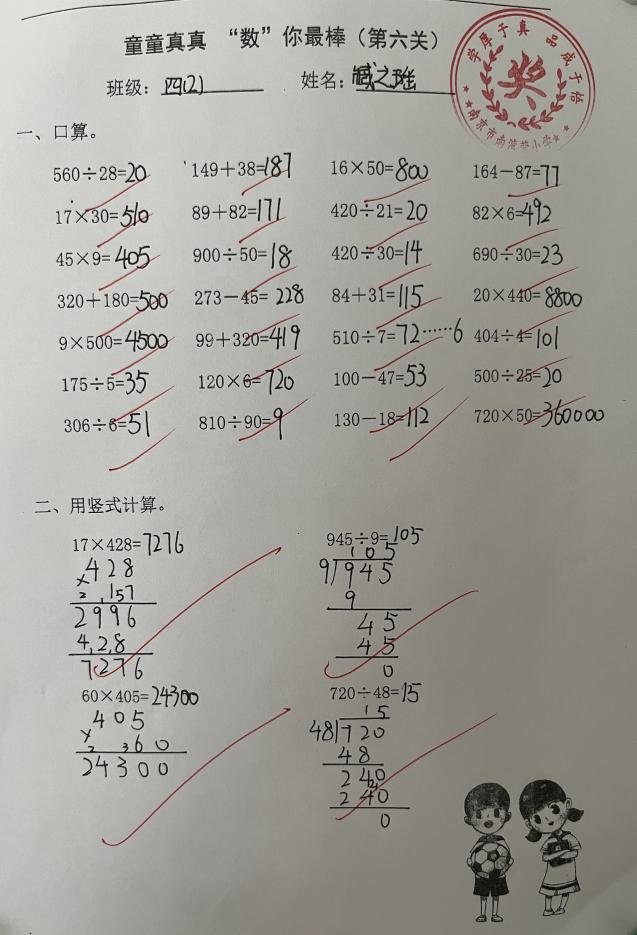 童童真真 “数”你最棒（第六关）
班级：四(2) 姓名：臧之瑶
学厚于真 品成于悟
奖
南京市南湾营小学
一、口算。
560÷28=20 149+38=187 16×50=800 164-87=77
17×30=510 89+82=171 420÷21=20 82×6=492
45×9=405 900÷50=18 420÷30=14 690÷30=23
320+180=500 273-45=228 84+31=115 20×440=8800
9×500=4500 99+320=419 510÷7=72……6 404÷4=101
175÷5=35 120×6=720 100-47=53 500÷25=20
306÷6=51 810÷90=9 130-18=112 720×50=360000
二、用竖式计算。
17×428=7276 945÷9=105
428 105
×157 9)945
2996 9
428 45
7276 45
0
60×405=24300 720÷48=15
405 15
×60 48)720
24300 48
240
240
0